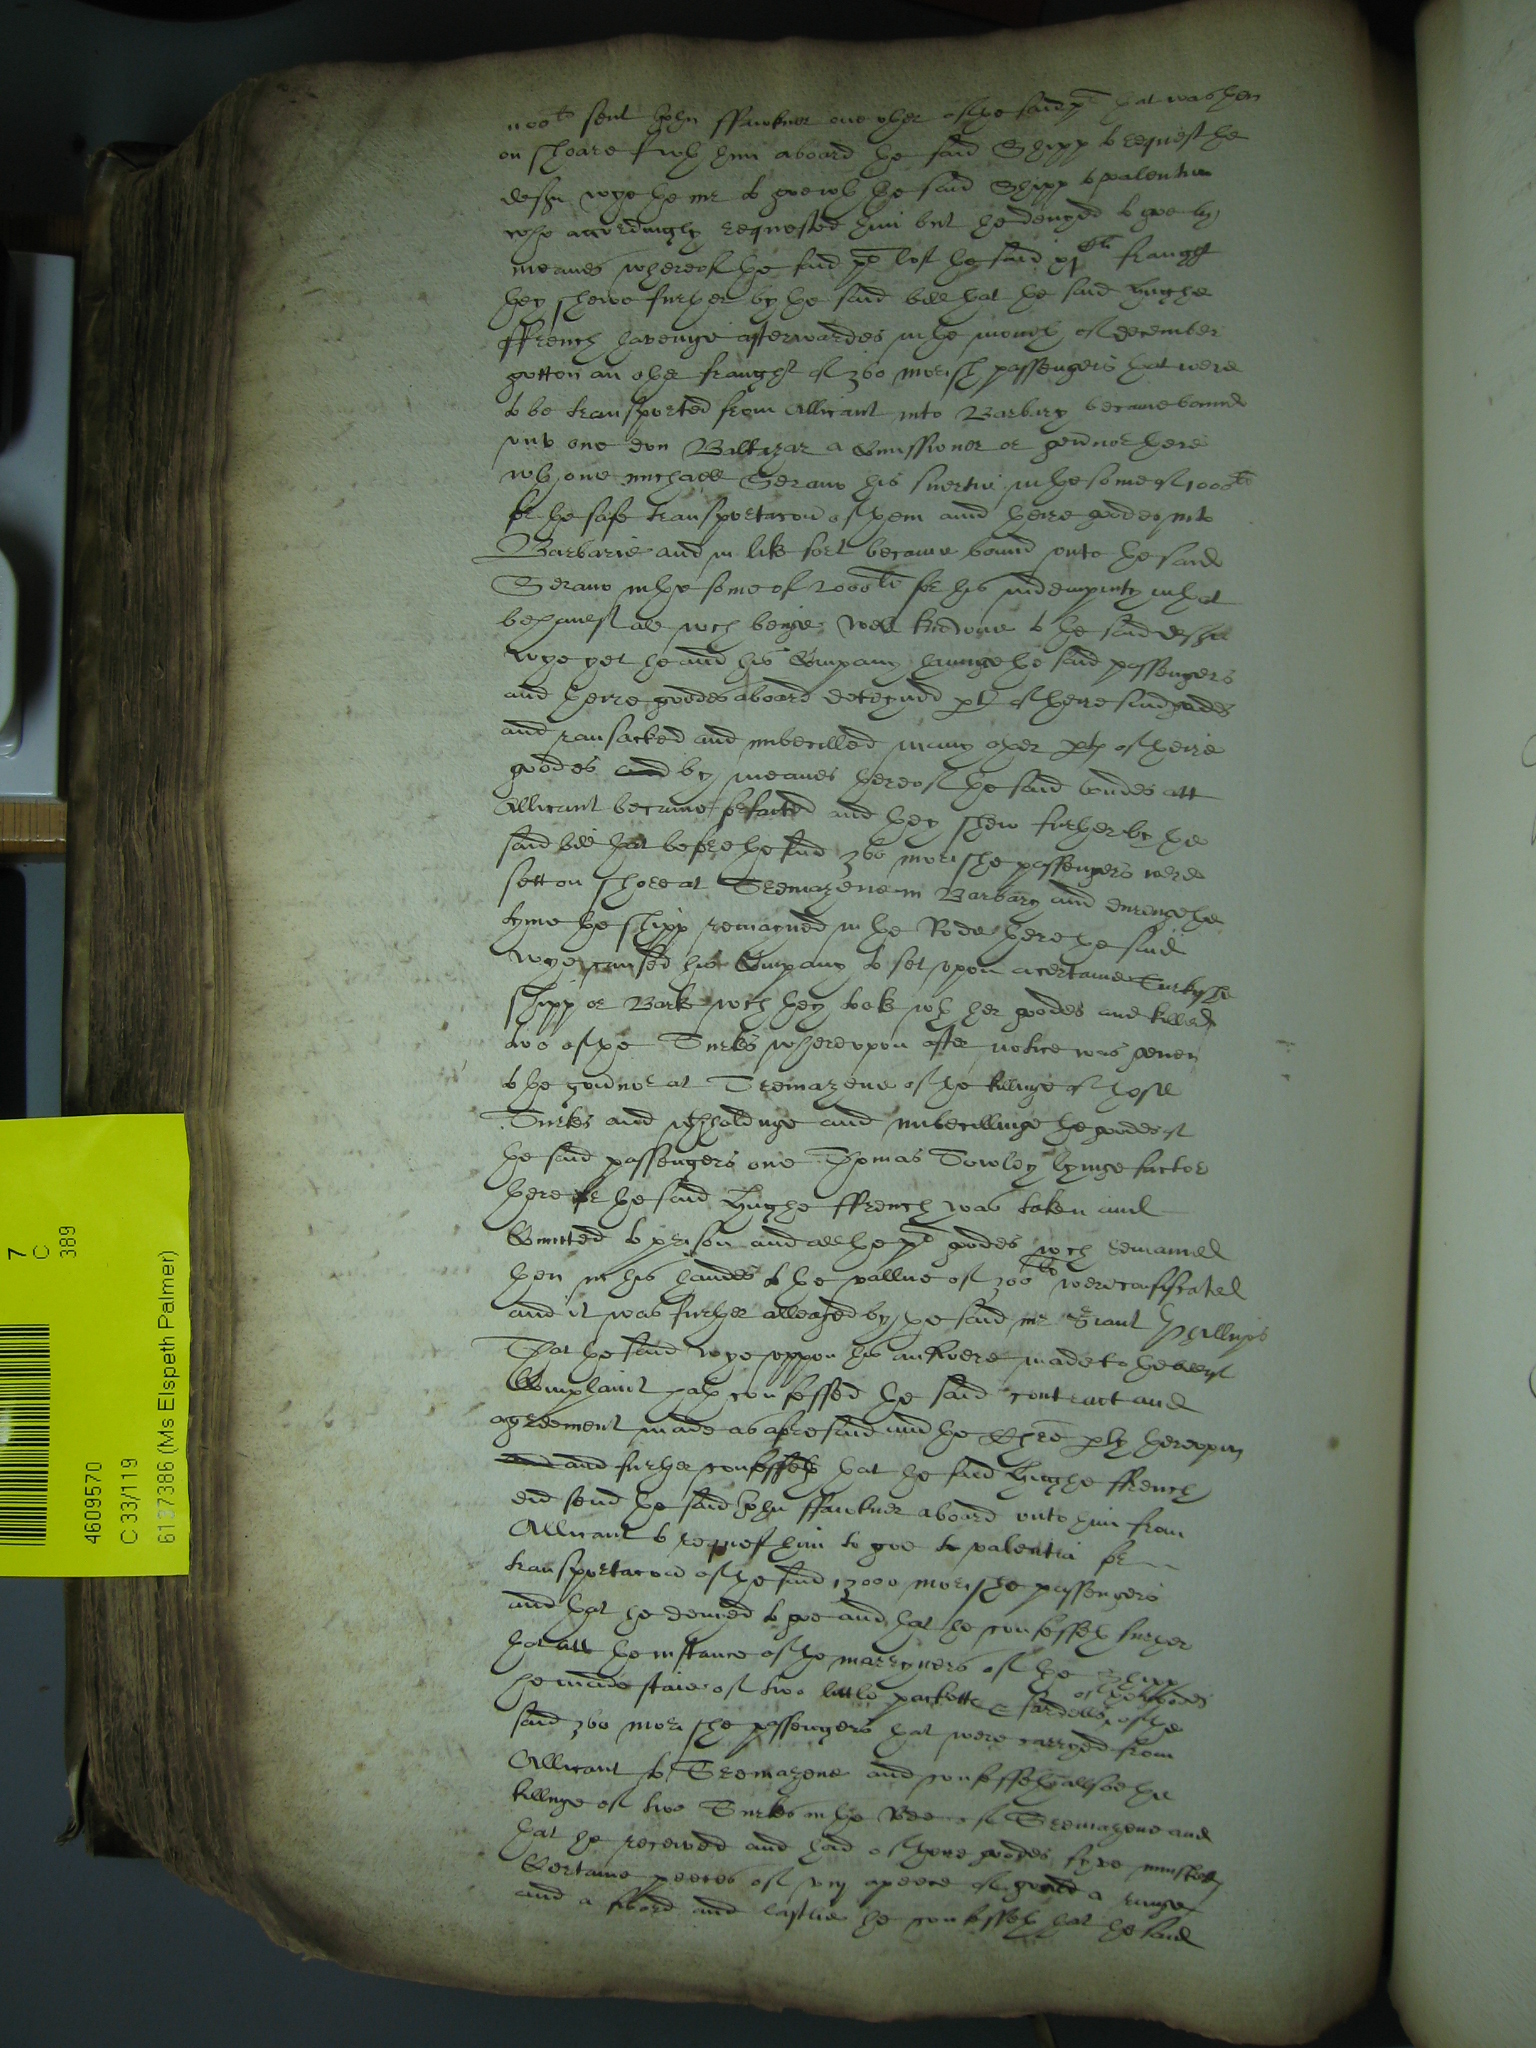 1100li sent John ffawkner one other of the said pts that was then
on shoare wth him aboard the said Shipp to request the
deft Wye the mr to goe wth the said Shipp to valentia
who accordinglie requested him but he denyed to goe by
meanes whereof the said pts lost the said fraught
they shewe further by the said bill that the said Hughe
ffrench havinge afterwardes in the moneth of december
gotten an other fraught of 360 morish passengers that were
to be transported from Allicant into Barbary became bound
unto one don Baltizar a Comissioner or gounor there
wth one michaell Serano his suertie in the some of 1000li
for the safe transportacon of them and theire goodes into
Barbarie and in like sort became bound unto the said
Serano in the some of 2000li for his indempnity in that
behaulf all wch beinge well knowne to the said deft
Wye yet he and his Company havinge the said passengers
and theire goodes aboard deteyned pt of theire said goodes
and ransacked and imbecilled many other pts of theire
goodes and by meanes thereof the said bondes att
Allicant became forfaited and they shew further by the
said bill that before the said 360 morishe passengers were
sett on shore at Tremazene in Barbary and duringe the
tyme the shipp remayned in the Rode there the said
Wye caused his Company to set uppon a certaine Turkyshe
shipp or Barke wch they tooke wth her goodes and killed
two of the Turkes whereupon after notice was geven
to the gounor at Tremazene of the killinge of those
Turkes and wthholdinge and imbecillinge the goodes of
the said passengers one Thomas Towley lyinge factor
there for the said Hughe ffrench was taken and
Comitted to prison and all the pts goodes wch remained
then in his handes to the vallue of 300li were confiscated
and it was further alleaged by the said mr Seriant Phillipps
That the said Wye uppon his answere made to the
Complaint hath confessed the said contract and
agreement made as aforesaid and the Chre ptie thereupon
and further confesseth that the said Hughe ffrench
did send the said John ffawkner aboard unto him from
Allicant to request him to goe to valentia for
transportacon of the said 12000 morishe passengers
and that he denied to goe and that he confesseth further
that att the instance of the marryners of the Shipp
he made staie of two little packetts & fardells of the goodes of the
said 360 morishe passengers that were carryed from
Allicant to Tremazene and confesseth allsoe the
killinge of two Turkes in the Rode of Tremazene and
that he received and had of there goodes fyve musketts
Certaine peeces of vs apeece of gould a ringe
and a sword and lastlie he confesseth that the said
7
C
389
4609570
C 33/119
6137386 (Ms Elspeth Palmer)